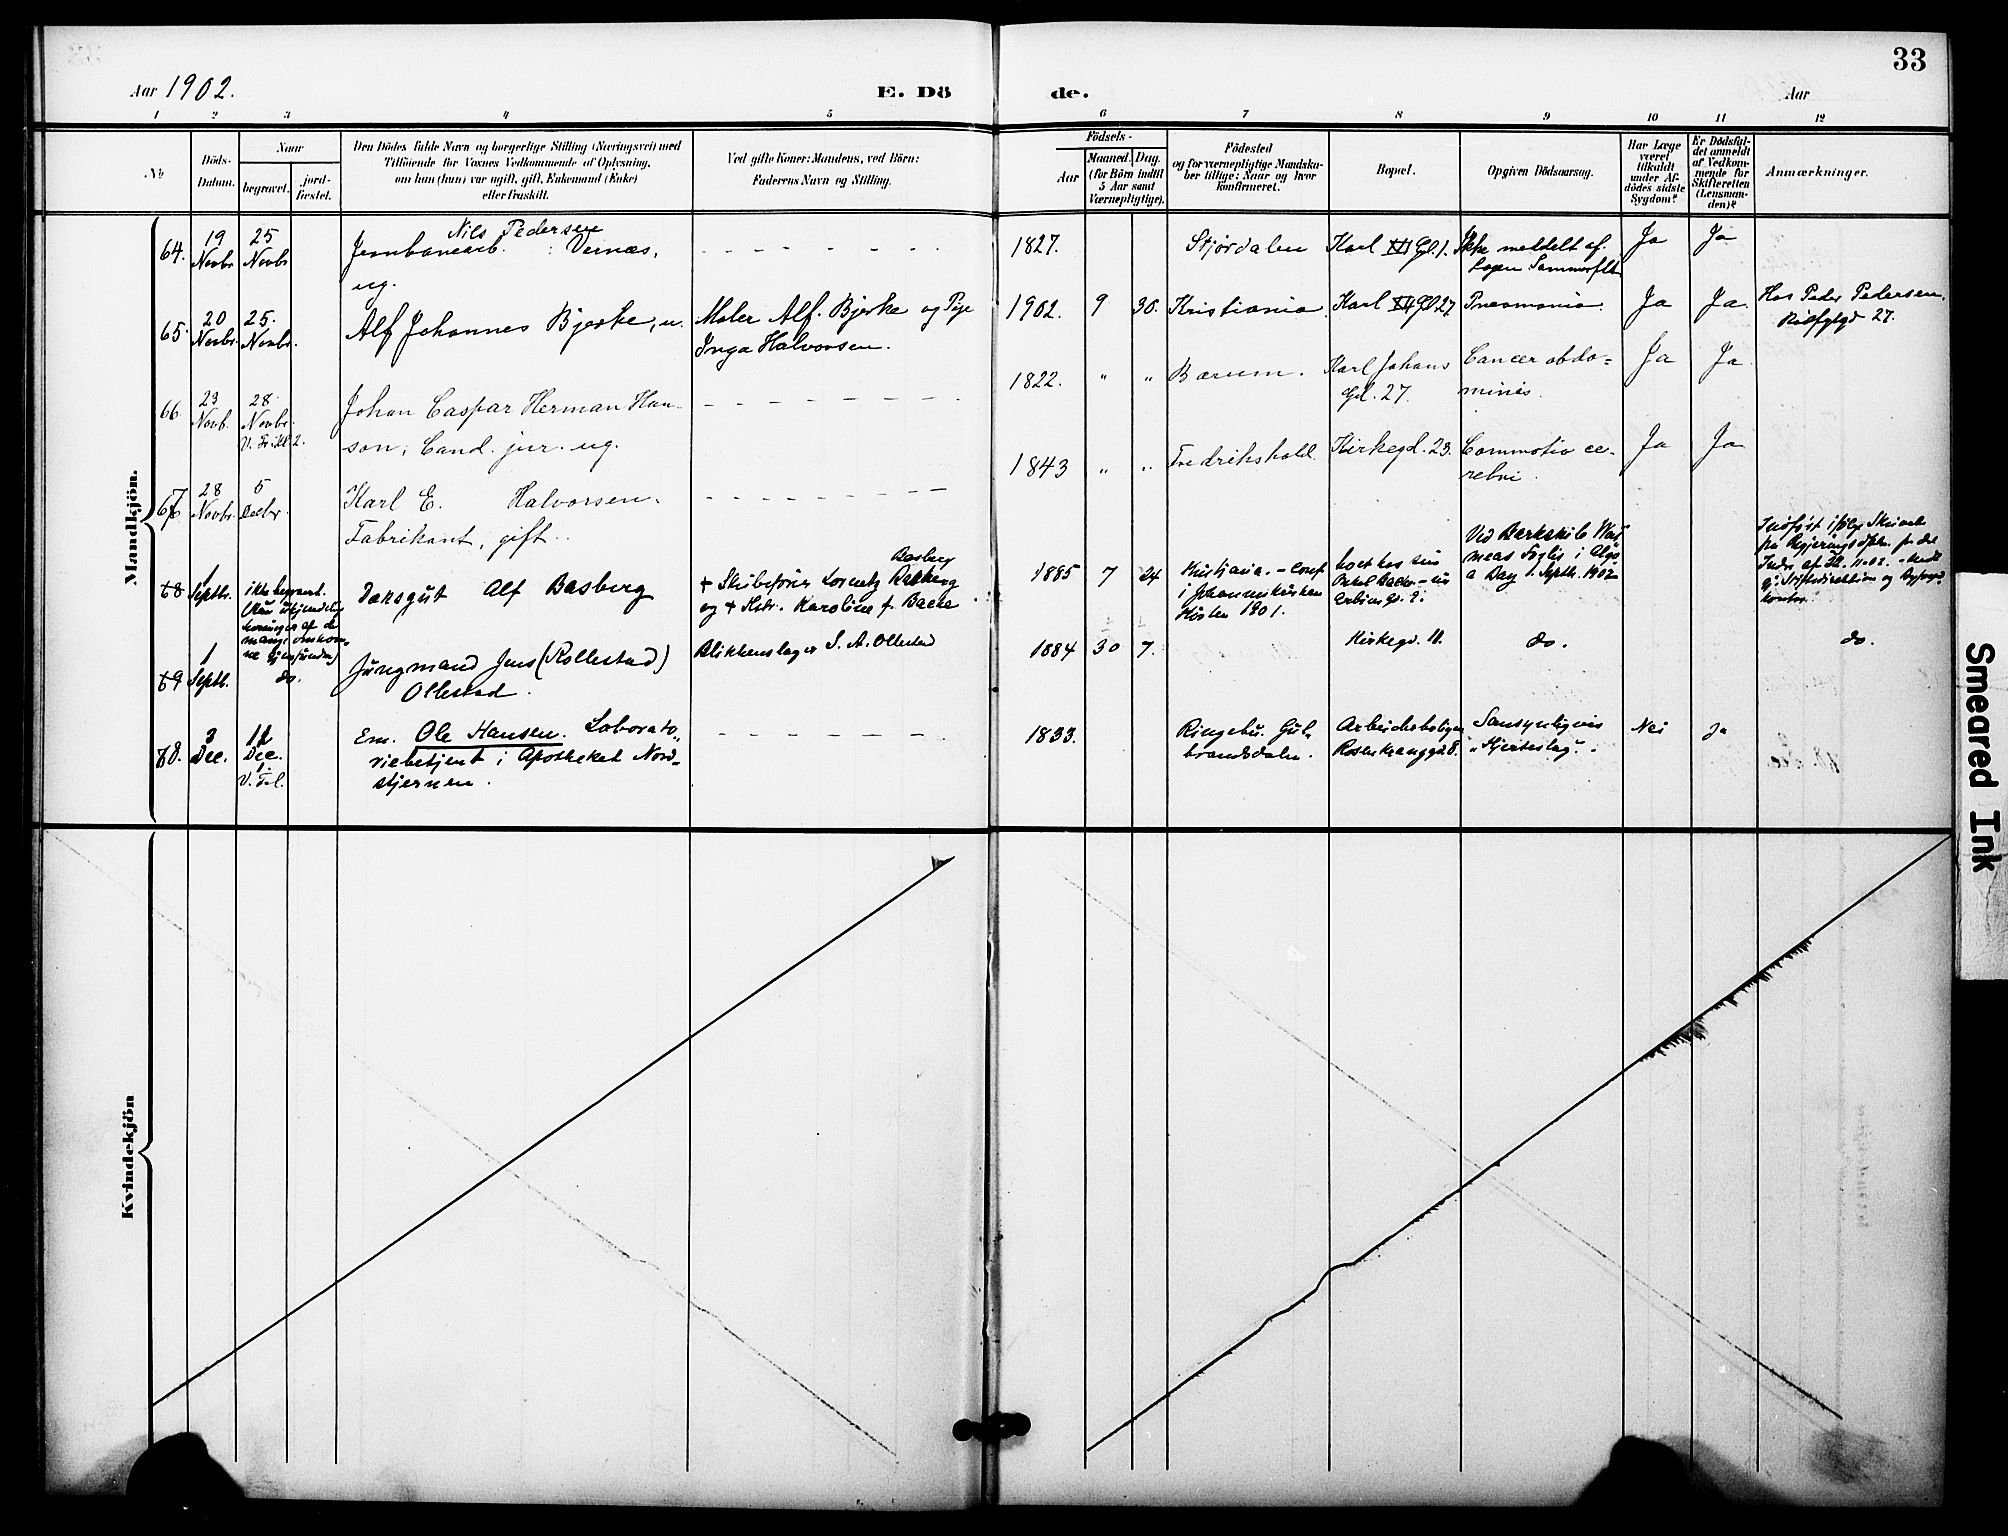 33
Aar 1902.
E. Dö
de.
Aar
1 2 3 4 5
6 7 8 9 10 11 12
No
Döds-
Datum.
Naar
begravet.
jord-
fæstet.
Den Dödes fulde Navn og borgerlige Stilling (Næringsvei) med
Tilföiende for Voxnes Vedkommende af Oplysning,
om han (hun) var ugift, gift, Enkemand (Enke)
eller fraskilt.
Ved gifte Koner: Mandens, ved Börn:
Faderens Navn og Stilling.
Födsels-
Aar
Maaned. Dag.
(for Börn indtil
5 Aar samt
Værnepligtige).
Födested
og for værnepligtige Mandska-
ber tillige: Naar og hvor
konfirmeret.
Bopæl.
Opgiven Dödsaarsag.
Har Læge
været
tilkaldt
under Af-
dödes sidste
Sygdom?
Er Dödsfal-
det anmeldt
af Vedkom-
mende for
Skifteretten
(Lensman-
den)?
Anmærkninger.
Mandkjön.
64.
19
Novbr
25
Novbr
Nils Pedersen
Jernbanearb. : Værnes,
ug.
1827.
Stjørdalen
Karl XII Gd. 1.
Ikke meldelt af
Ja
Ja
65.
20
Novbr.
25.
Novbr.
Alf Johannes Bjerke, u.
Maler Alf. Bjerke og Pige
Inga Halvorsen.
1902. 9 30.
Kristiania.
Karl XII Gd 27
Pneumonia.
Ja
Ja.
Hos Peder Pedersen,
27.
66.
23
Novb.
28.
Novbr.
2.
Johan Caspar Herman Han-
sen; Cand. jur. ug.
1822. " "
Bærum.
Karl Johans
Gd. 27.
Cancer abdo=
minis.
Ja
Ja
67
28
Novbr.
5
Decbr
Karl E. Halvorsen.
Fabrikant, gift.
1843 " "
Fredrikshald.
Kirkegd. 23.
Commotio ce-
rebri.
Ja
Ja
68
1
Septbr.
ikke begravet.
Alf Basberg
Basberg
+ Skibsfører Lorentz
og + Hstr. Karoline f. Backe.
1885 7 24
Kristiania. - conf
i Johanneskirken
Høsten 1901.
boet hos sin
Onkel Backe -
Ved Barkskib
Forlis i
Bay 1. Septbr. 1902
Indført ifølge Skrivelse
fra
69
1
Septb.
do.
Jungmand Jens (Rollestad)
Ollestad.
Blikkenslager S. A. Ollestad
1884 30 7.
Kirkegd. 11.
do.
do.
70.
3
Dec.
Dec.
Em. Ole Hansen. Laborato-
riebetjent i Apotheket Nord-
stjernen.
1833.
Ringebu. Gud-
brandsdalen.
Arbeiderboligen
Rosenkrantzgd. 8.
Sansynligvis
"Hjerteslag".
Nei
Ja
Kvindekjön
Smeared Ink